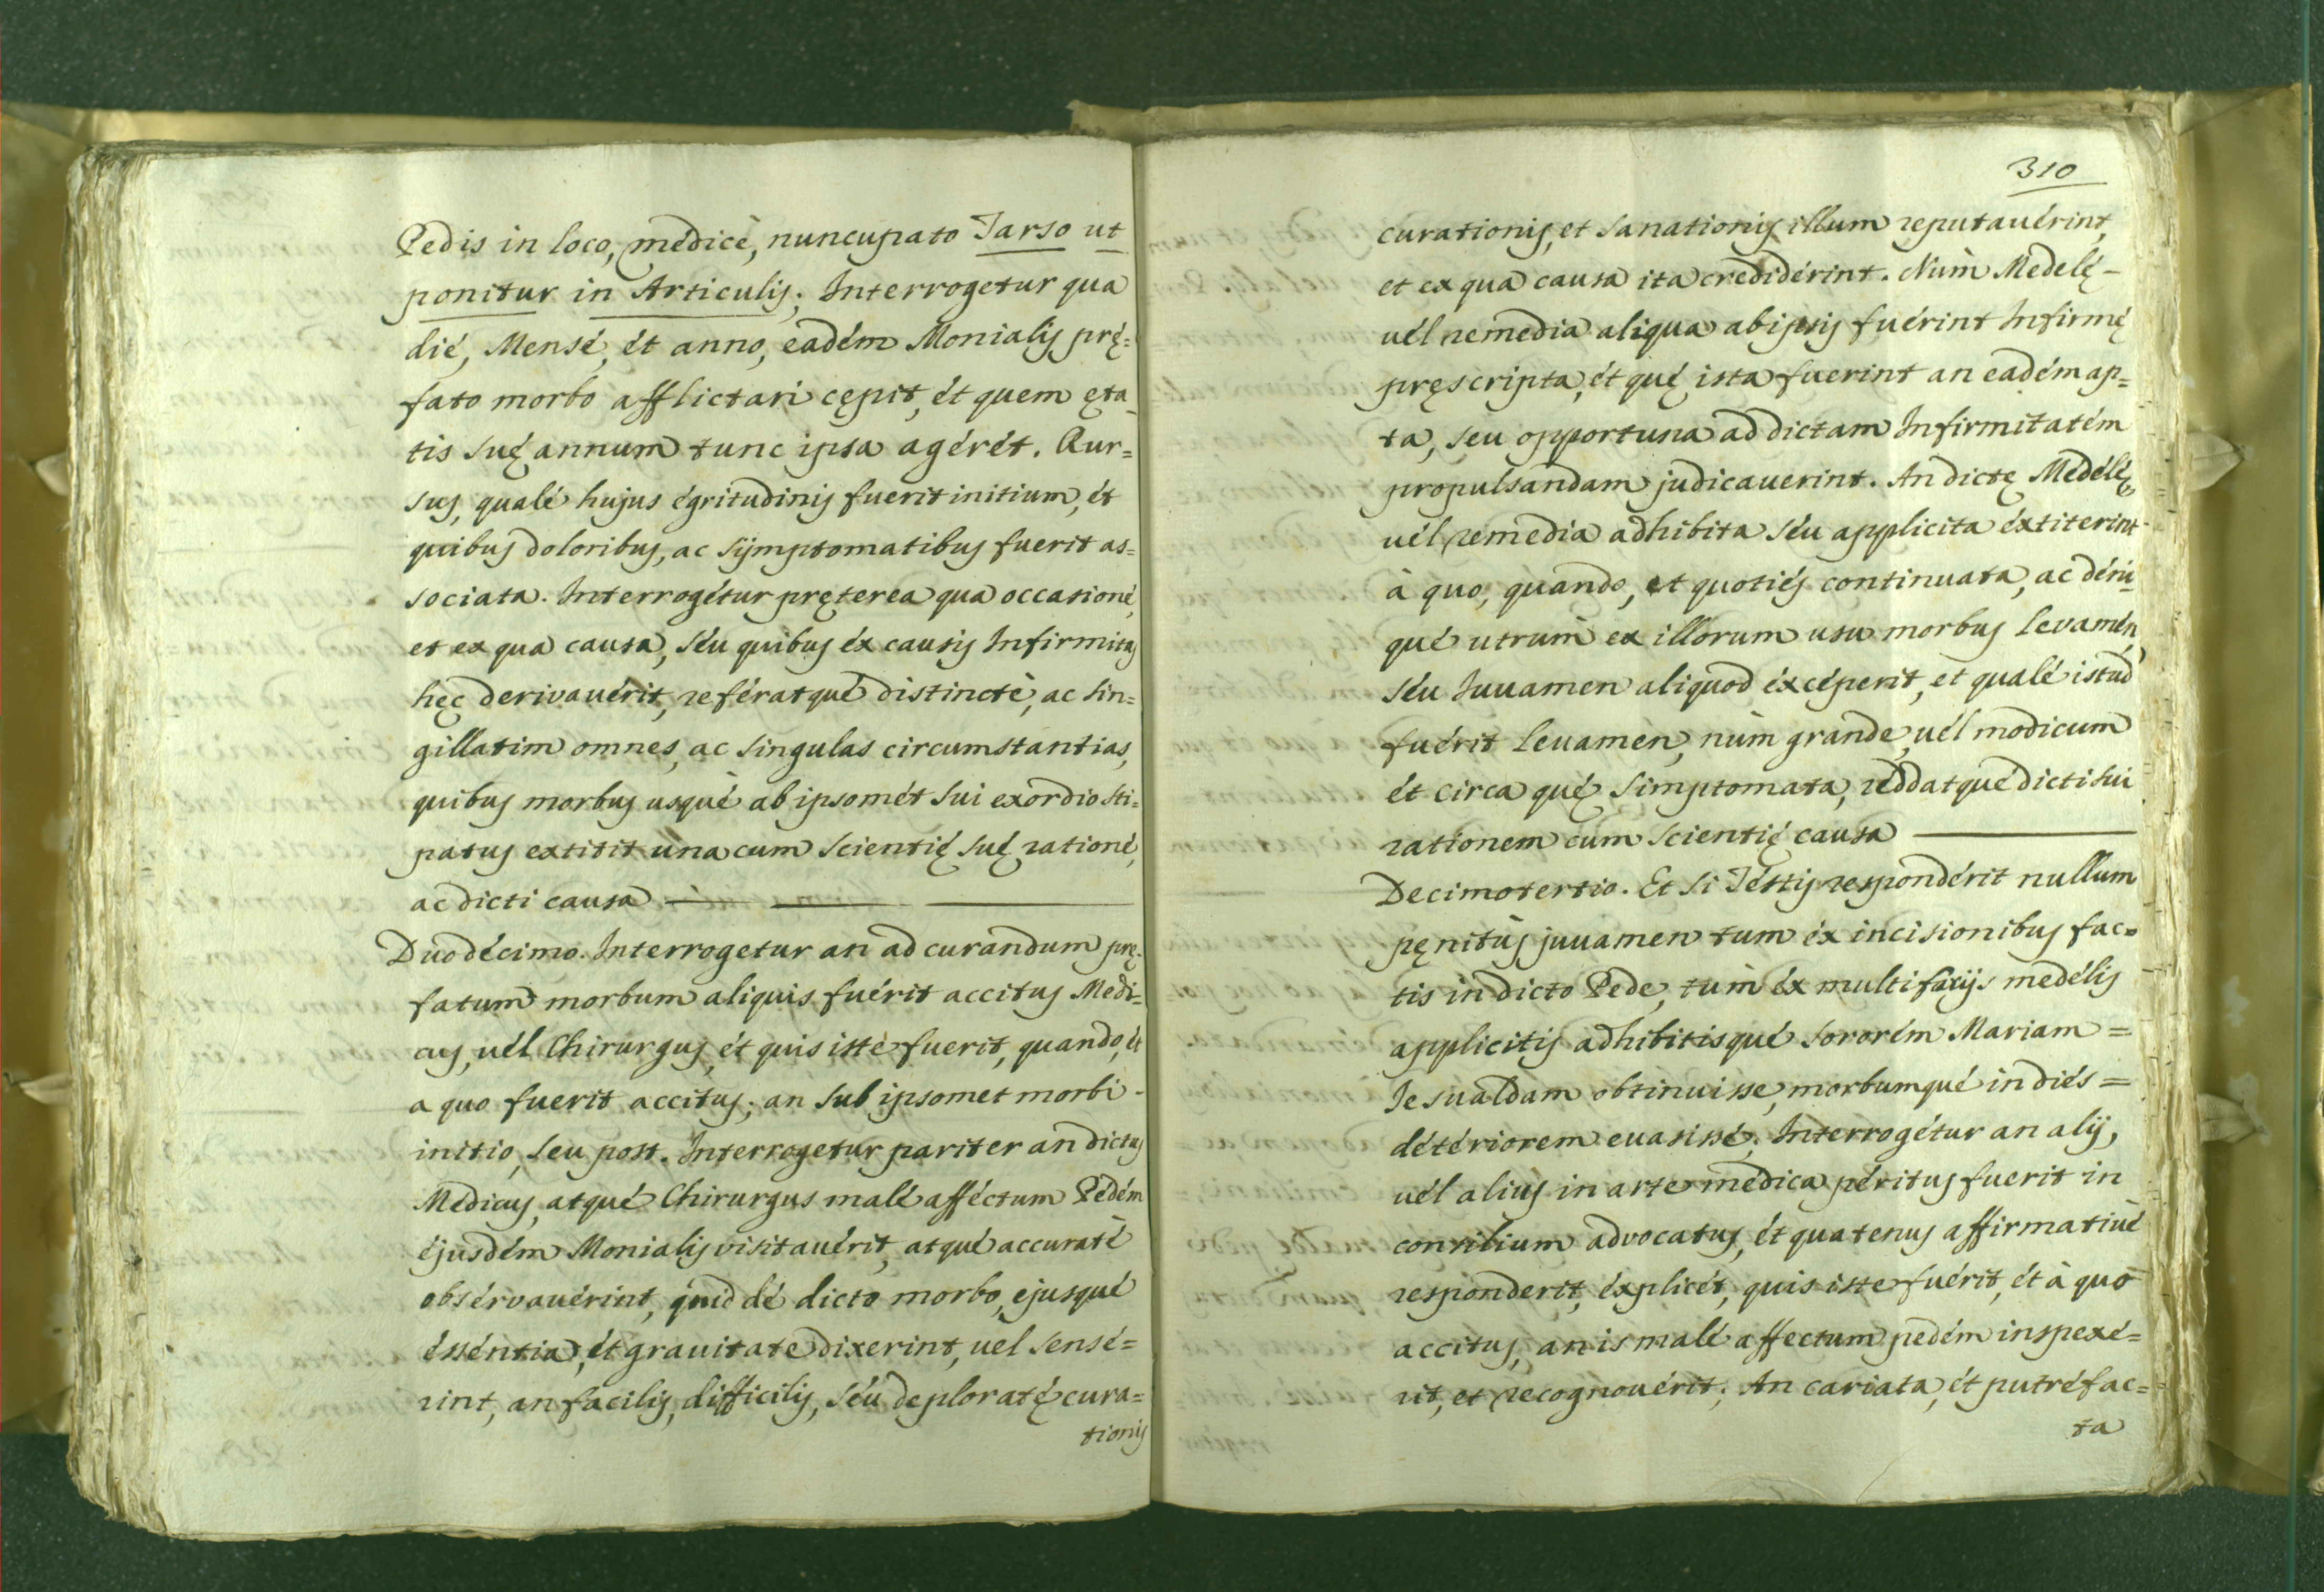 Pedis in loco, medicè, nuncupato Tarso ut
ponitur in Articulis; Interrogetur qua
dié, Mensé, ét anno, eadém Monialis prę=
fato morbo afflictari cępit, ét quem ęta-
tis suę annum tunc ipsa agérét. Rur=
sus, qualé hujus égritudinis fuerit initium, ét
quibus doloribus, ac sÿmptomatibus fuerit as=
sociata. Interrogétur pręterea qua occasioné,
et ex qua causa, séu quibus éx causis Infirmitas
hęc derivauérit, reférat qué distinctè, ac sin=
gillatim omnes, ac singulas circumstantias,
quibus morbus usquè ab ipsomét sui exordio sti=
patus extitit una cum scientię suę rationé,
ac dicti causa
Duodécimo. Interrogetur an ad curandum prę-
fatum morbum aliquis fuérit accitus Medi=
cus, uél Chirurgus, ét quis iste fuerit, quando, ét
a quo fuerit accitus; an sub ipsomet morbi -
initio, seu post. Interrogetur pariter an dictus
Medicus, atqué Chirurgus malé afféctum Pedém
éjusdém Monialis visitauérit, atqué accuratè
obsérvauérint, quid dé dicto morbo, ejusqué
ésséntia, ét grauitate dixerint, uel sensé=
rint, an facilis, difficilis, séu deploratę cura=
tionis
310
curationis, et sanationis illum reputauérint,
et ex qua causa ita crediderint. Nùm Medelę -
uél remedia aliqua ab ipsis fuérint Infirmę
pręscripta, ét qué ista fuerint an eadém ap=
ta, seu opportuna ad dictam Infirmitatém
propulsandam judicauerint. An dictę Medélę
uél remedia adhibita séu applicita éxtiterint
à quo, quando, et quotiés continuata, ac déni-
qué utrum ex illorum usu morbus levamén,
séu Juuamen aliquod éxcéperit, et qualé istud
fuérit leuamen, nùm grande, uél modicum
ét circa qué simptomata, reddatqué dicti sui
rationem cum scientię causa
Decimotertio. Et si Téstis respondérit nullum
pęnitùs juuamen tum éx incisionibus fac=
tis in dicto Pede, tùm éx multifariis medélis
applicitis adhibitisqué Sororém Mariam =
Jesualdam obtinuisse, morbumqué in diés =
détériorem euasissé; Interrogétur an alij,
uél alius in arte medica péritus fuerit in
consilium advocatus, ét quatenus affirmatiuè
responderit, éxplicét, quis iste fuérit, ét à quo
accitus, an is malé affectum pedém inspexé=
rit, et recognouérit; An cariata, ét putréfac=
ta